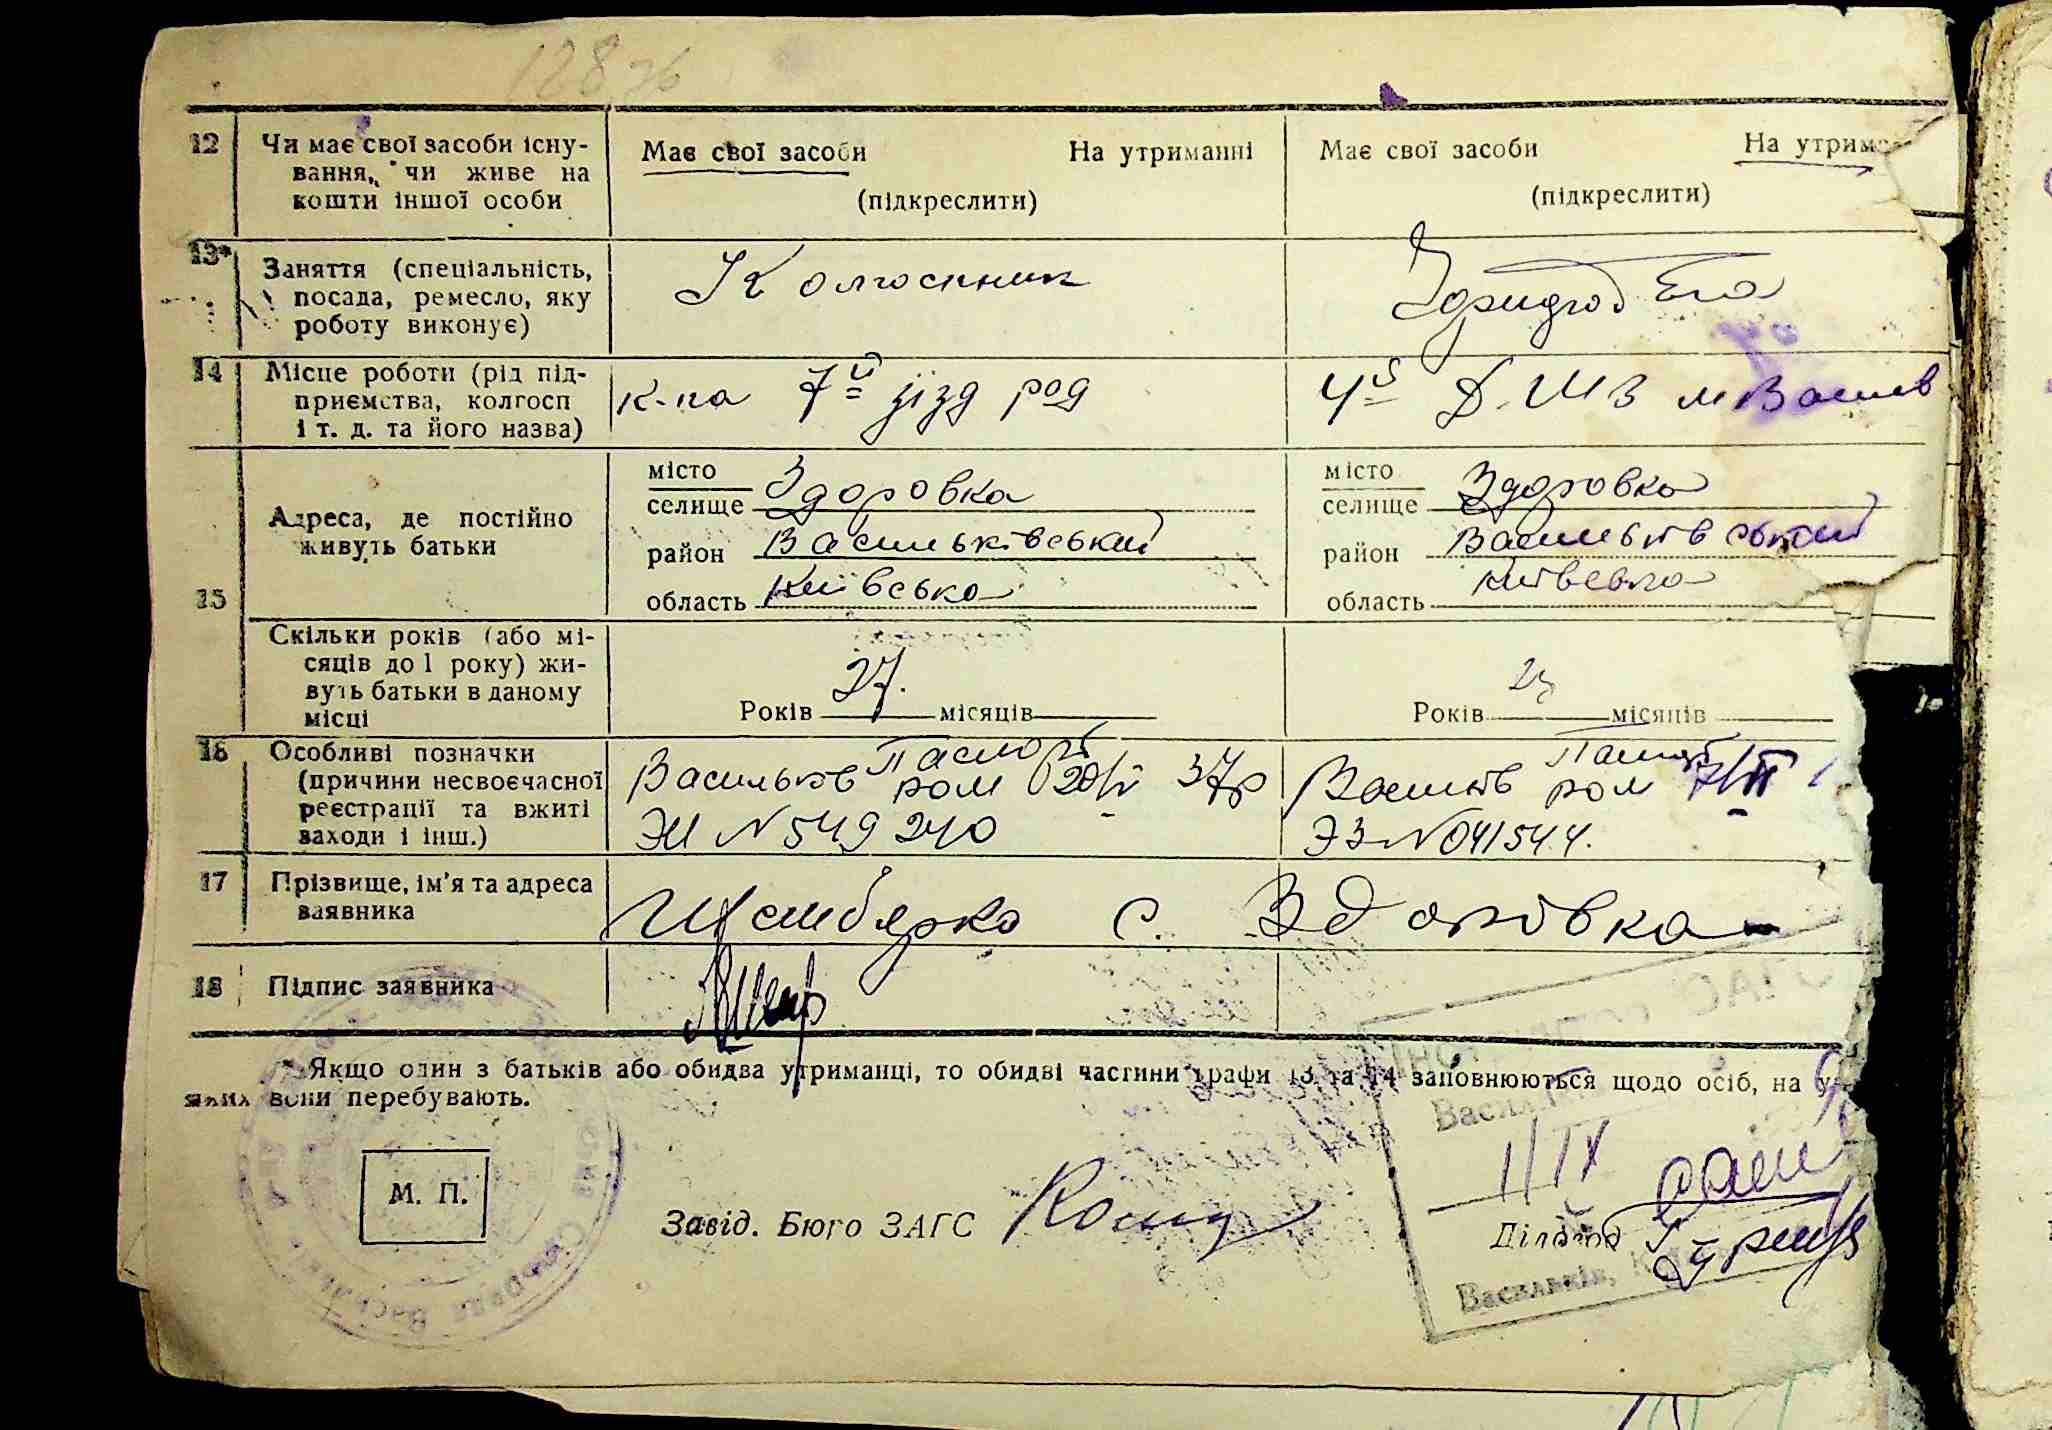 128
12
Чи має свої засоби існу-
вання, чи живе на
кошти іншої особи
Має свої засоби На утриманні
(підкреслити)
Має свої засоби На утрим
(підкреслити)
13*
Заняття (спеціальність,
посада, ремесло, яку
роботу виконує)
Колгоспник
14
Місце роботи (рід під-
приємства, колгосп
і т. д. та його назва)
к-па 7й зізд род
4й Д. Ш З м Васильків
15
Адреса, де постійно
живуть батьки
місто
селище Здоровка
район Васильківський
область Київська
місто
селище Здоровка
район Васильківський
область Київська
Скільки років (або мі-
сяців до 1 року) жи-
вуть батьки в даному
місці
Років 27. місяців
Років 23 місяців
16
Особливі позначки
(причини несвоєчасної
реєстрації та вжиті
заходи і інш.)
Паспорт
Васильків ром 20/V 37р
№ 549240
Паспорт
Васильків ром
ЭЗ №041544.
17
Прізвище, ім'я та адреса
заявника
с. Здоровка
18
Підпис заявника
* Якщо один з батьків або обидва утриманці, то обидві частини графи 13 та 14 заповнюються щодо осіб, на у
яких вони перебувають.
М. П.
Завід. Бюро ЗАГС
Діловод
ЗАГС
Васильків
II/IX
Васильків,